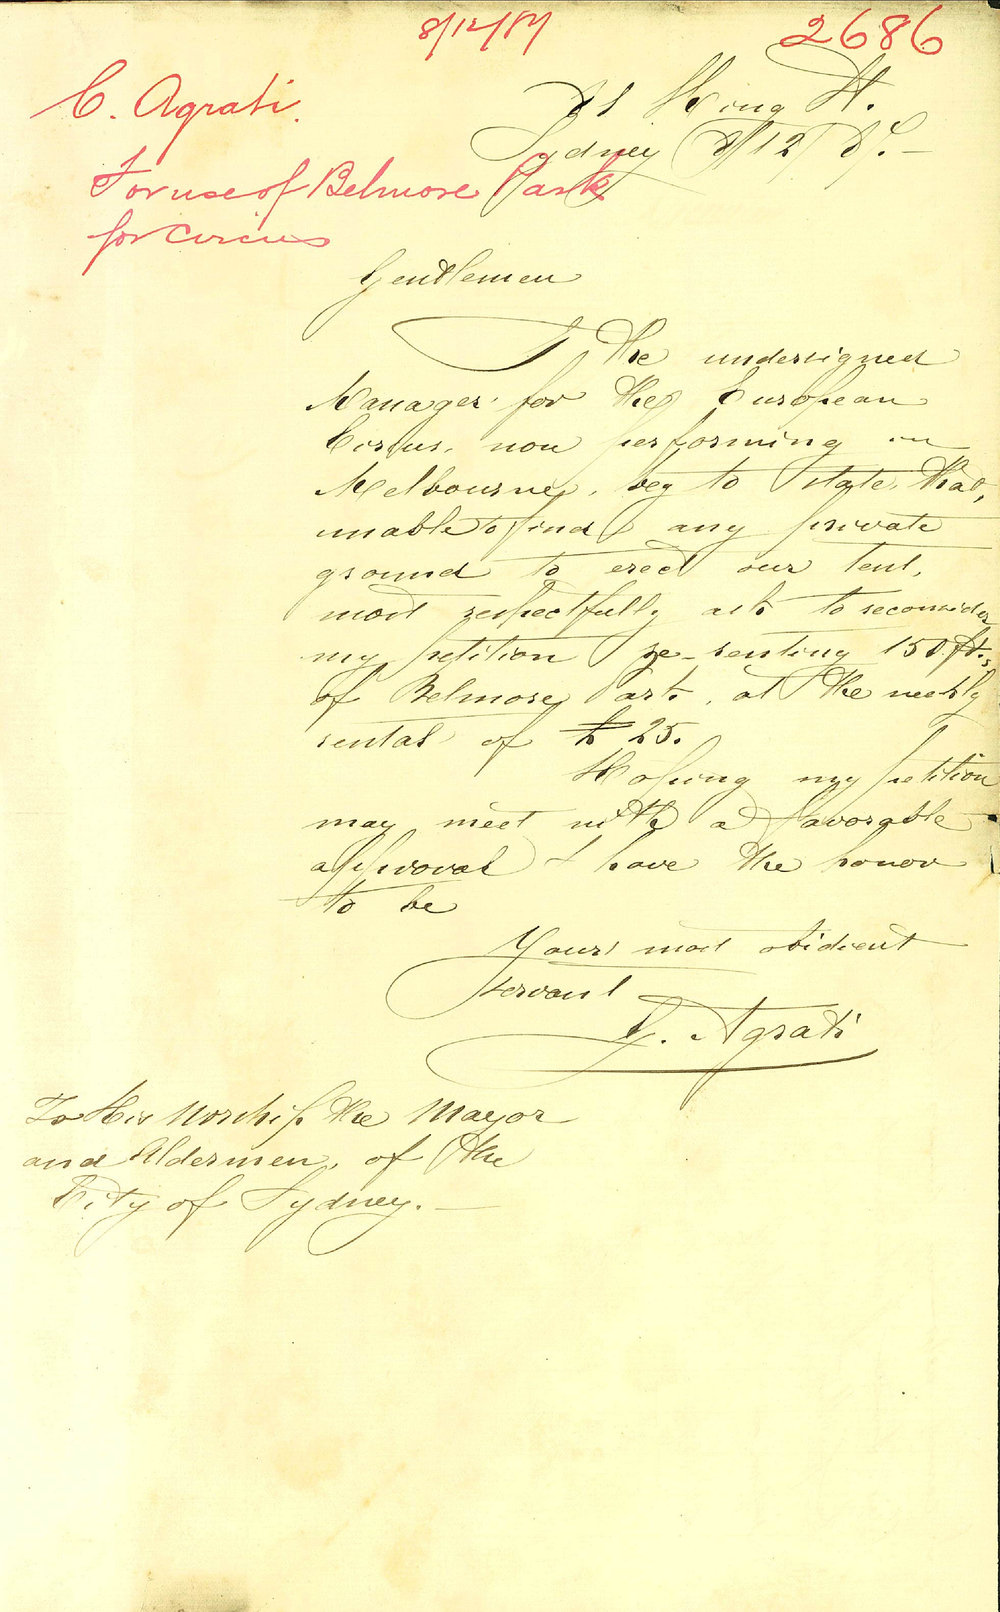 8/12/87
2686
C. Agrati.
For use of Belmore Park
for Circus
King St.
Sydney 8/12 87.-
Gentlemen
I the undersigned
Manager for the European
Circus, now performing in
Melbourne, beg to state, that,
unable to find any private
ground to erect our tent,
most respectfully ask to reconsider
my petition re-renting 150 fts,
of Belmore Park, at the weekly
rental of £ 25.
Hoping my petition
may meet with a favorable
approval I have the honor
to be
Yours most obidient
servant
G. Agrati
To His Worship the Mayor
and Aldermen, of the
City of Sydney.-